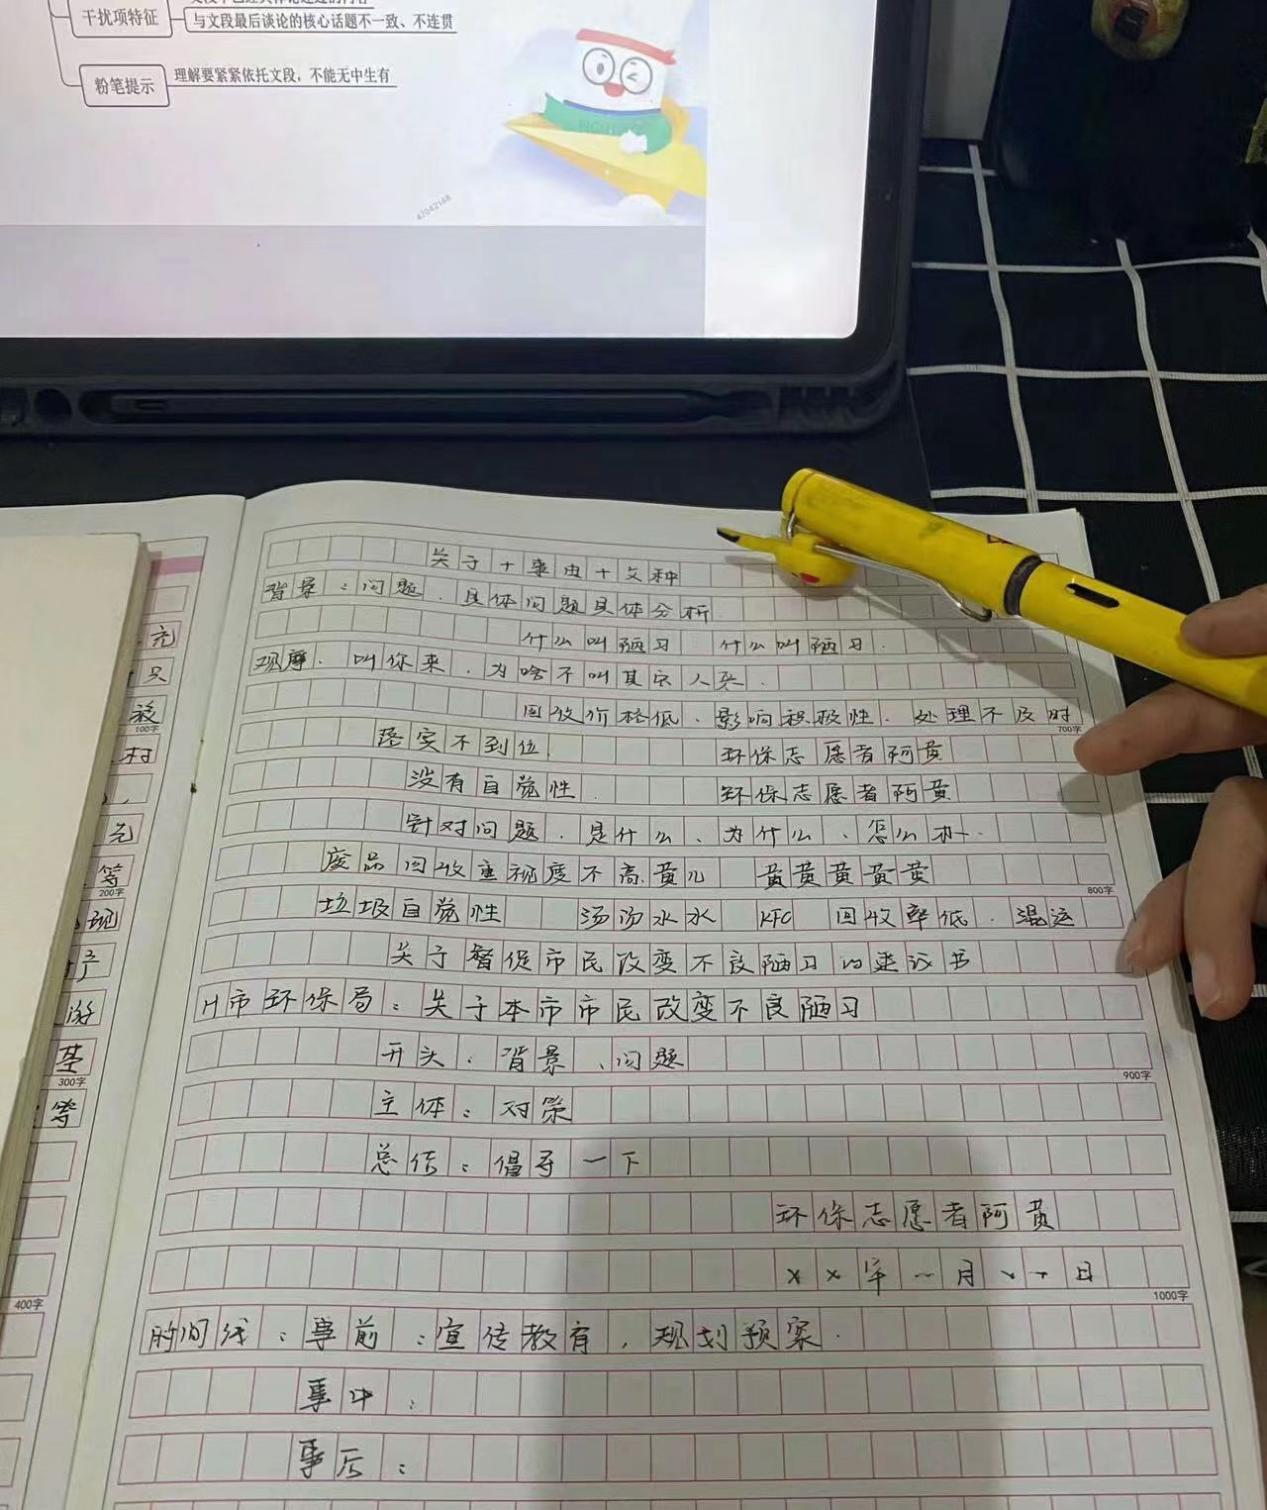 干扰项特征
与文段最后谈论的核心话题不一致、不连贯
粉笔提示
理解要紧紧依托文段，不能无中生有
42042148
关于+事由+文种
背景：问题．具体问题具体分析
什么叫陋习 什么叫陋习．
观摩．叫你来．为啥不叫其它人来．
回收价格低、影响积极性．处理不及时
700字
落实不到位 环保志愿者阿黄
没有自觉性 环保志愿者阿黄
针对问题．是什么、为什么、怎么办．
废品回收重视度不高黄儿 黄黄黄黄黄
800字
垃圾自觉性 汤汤水水 KFC 回收率低．混运
关于督促市民改变不良陋习的建议书
H市环保局：关于本市市民改变不良陋习
开头．背景、问题
900字
主体：对策
总结：倡导一下
环保志愿者阿黄
××年 月 日
1000字
时间线：事前：宣传教育，规划预案．
事中：
事后：
元
只
被
100字
村
元
等
200字
现
产
游
基
300字
等
400字